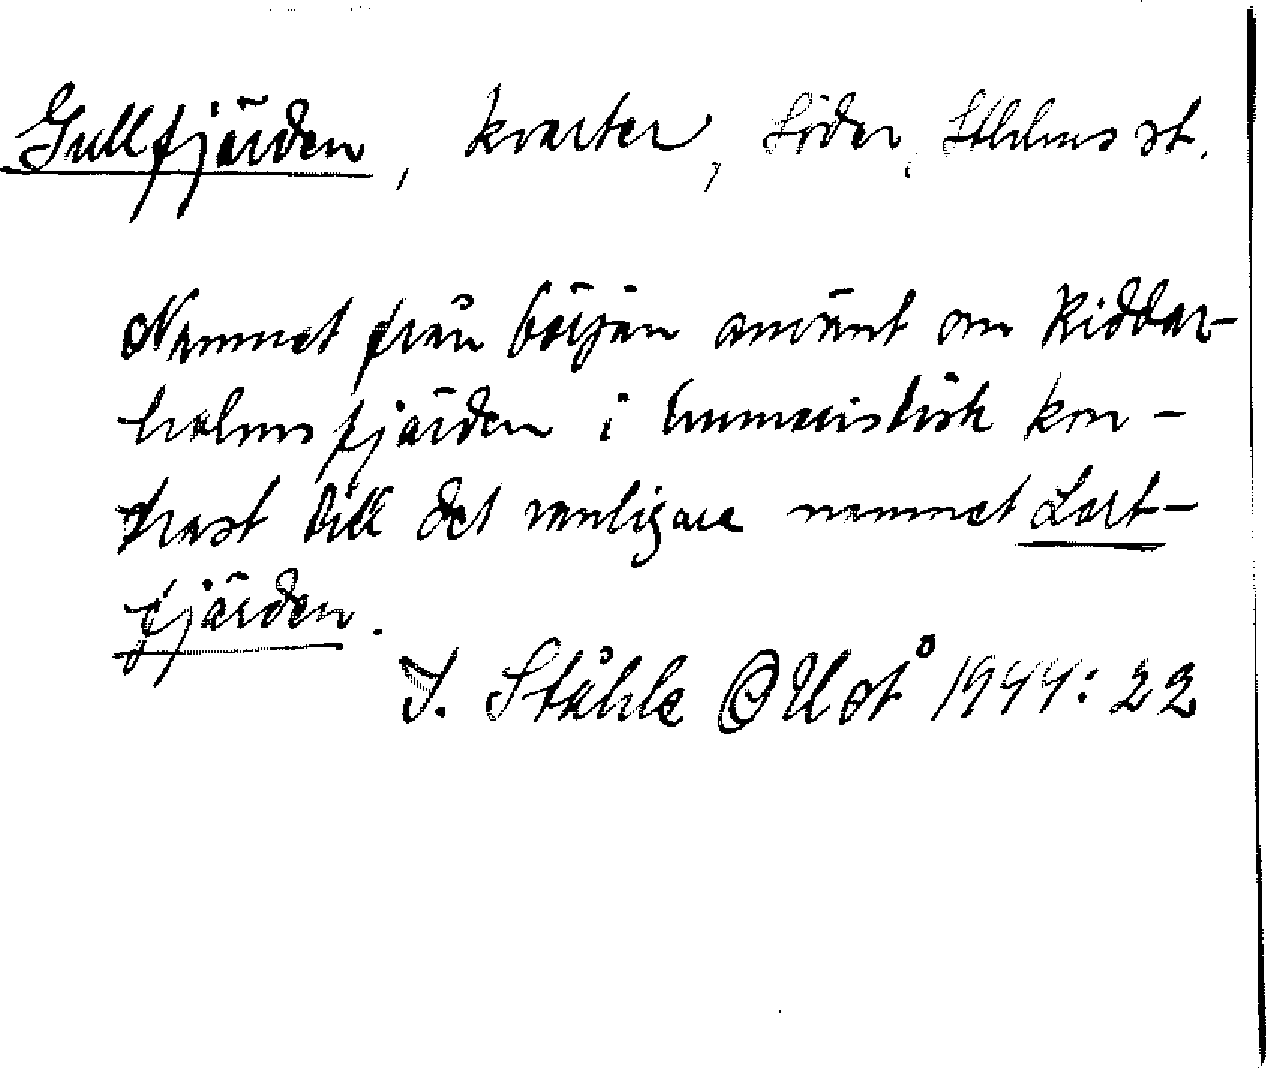 Gullfjärden, kvarter, Söder, Sthlms st.
Namnet från början använt om Riddar-
holmsfjärden i humoristisk kon-
trast till det vanligare namnet Lort-
fjärden.
I. Ståhle i Ust å 1944: 22